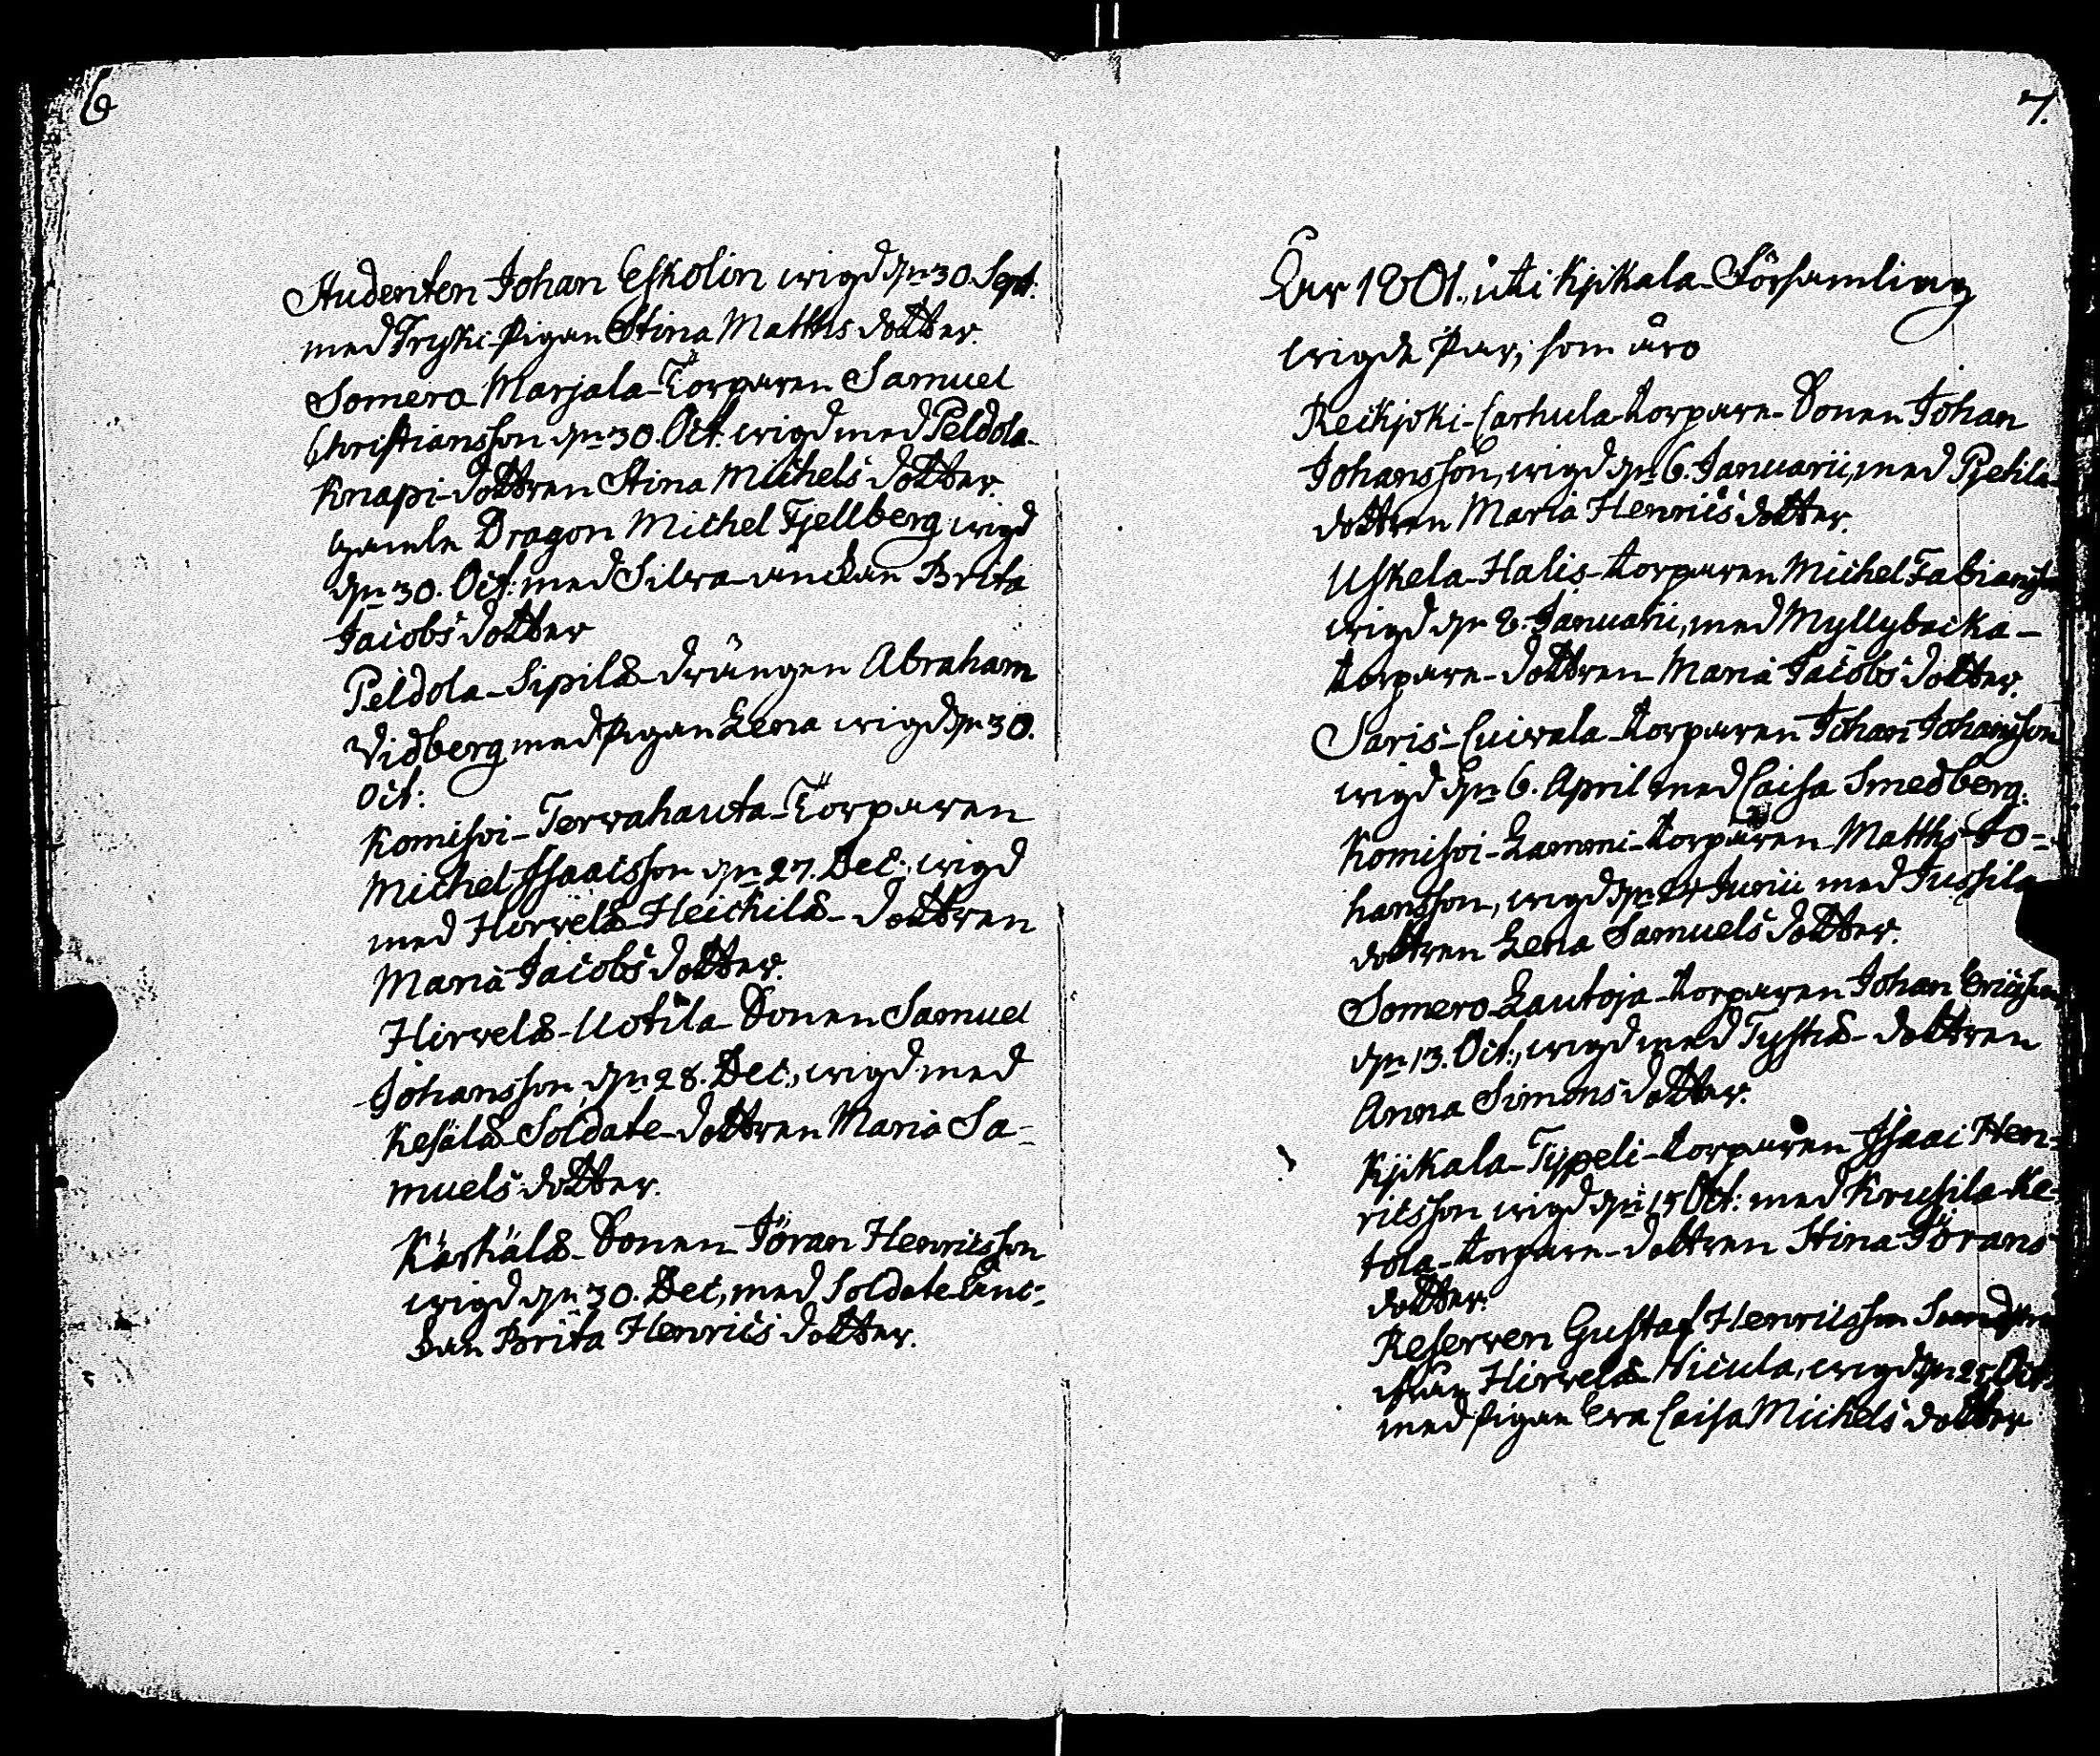 6
Studenten Johan Eskolin wigd den 30. Sept:
med Fryski-Pigan Stina Matths dotter.
Somero-Marjala-Torparen Samuel
Christiansson den 30. Oct. wigd med Peldola-
Knapi-dottren Stina Michels dotter.
gamla Dragon Michel Fjellberg wigd
den 30. Oct: med Silwa-änckan Brita
Jacobs dotter
Peldola-Sipilä-drängen Abraham
Vidberg med Pigan Lena wigd den 30.
Oct:
Komisoi-Terwahauta-Torparen
Michel Isaacsson den 27. Dec:, wigd
med Horvelä-Heickilä-dottren
Maria Jacobs dotter.
Hirvelä-Uotila-Sonen Samuel
Johansson, den 28. Dec:, wigd med
Kesälä-Soldate-dottren Maria Sa-
muels dotter.
Kärkälä-Sonen Jöran Henricsson
wigd den 30. Dec, med Soldate-Enc-
kan Brita Henrics dotter.
7.
Åhr 1801., uti Kjikala-Församling
wigde Par, som äro
Reikjoki-Carhula-torpare-Sonen Johan
Johansson, wigd den 6. Januarii, med Pjehila-
dottren Maria Henrics dotter.
Uskela-Halis-torparen Michel Fabiansson
wigd den 8. Januarii, med Myllybacka-
torpare-dottren Maria Jacobs dotter.
Saris-Cuiwala-torparen Johan Johansson
wigd den 6. April med Caisa Smedberg.
Komisoi-Lammi-torparen Matths Jo-
hansson, wigd den 24 Junii med Jussila
dottren Lena Samuels dotter.
Somero-Lautoja-torparen Johan Ericsson
den 13. Oct:, wigd med Tystä-dottren
Anna Simons dotter.
Kjikala-Typeli-torparen Isaac Hen-
ricsson wigd den 15 Oct: med Krusila-Ke-
tola-torpare-dottren Stina Jörans
dotter.
Reserven Gustaf Henricsson
ifrån Hirvelä-Hicula, wigd den 25 Oct.
med pigan Eva Caisa Michels dotter